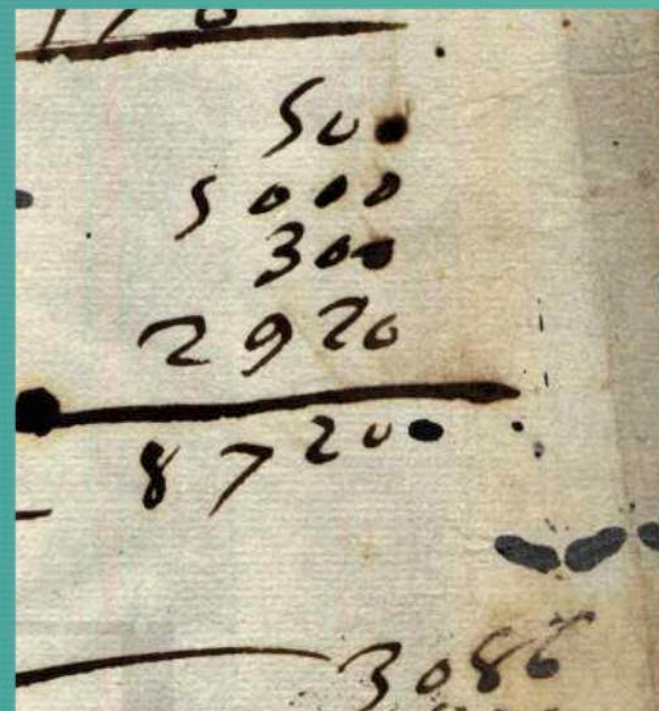 500
5000
300
2920
8720
3086